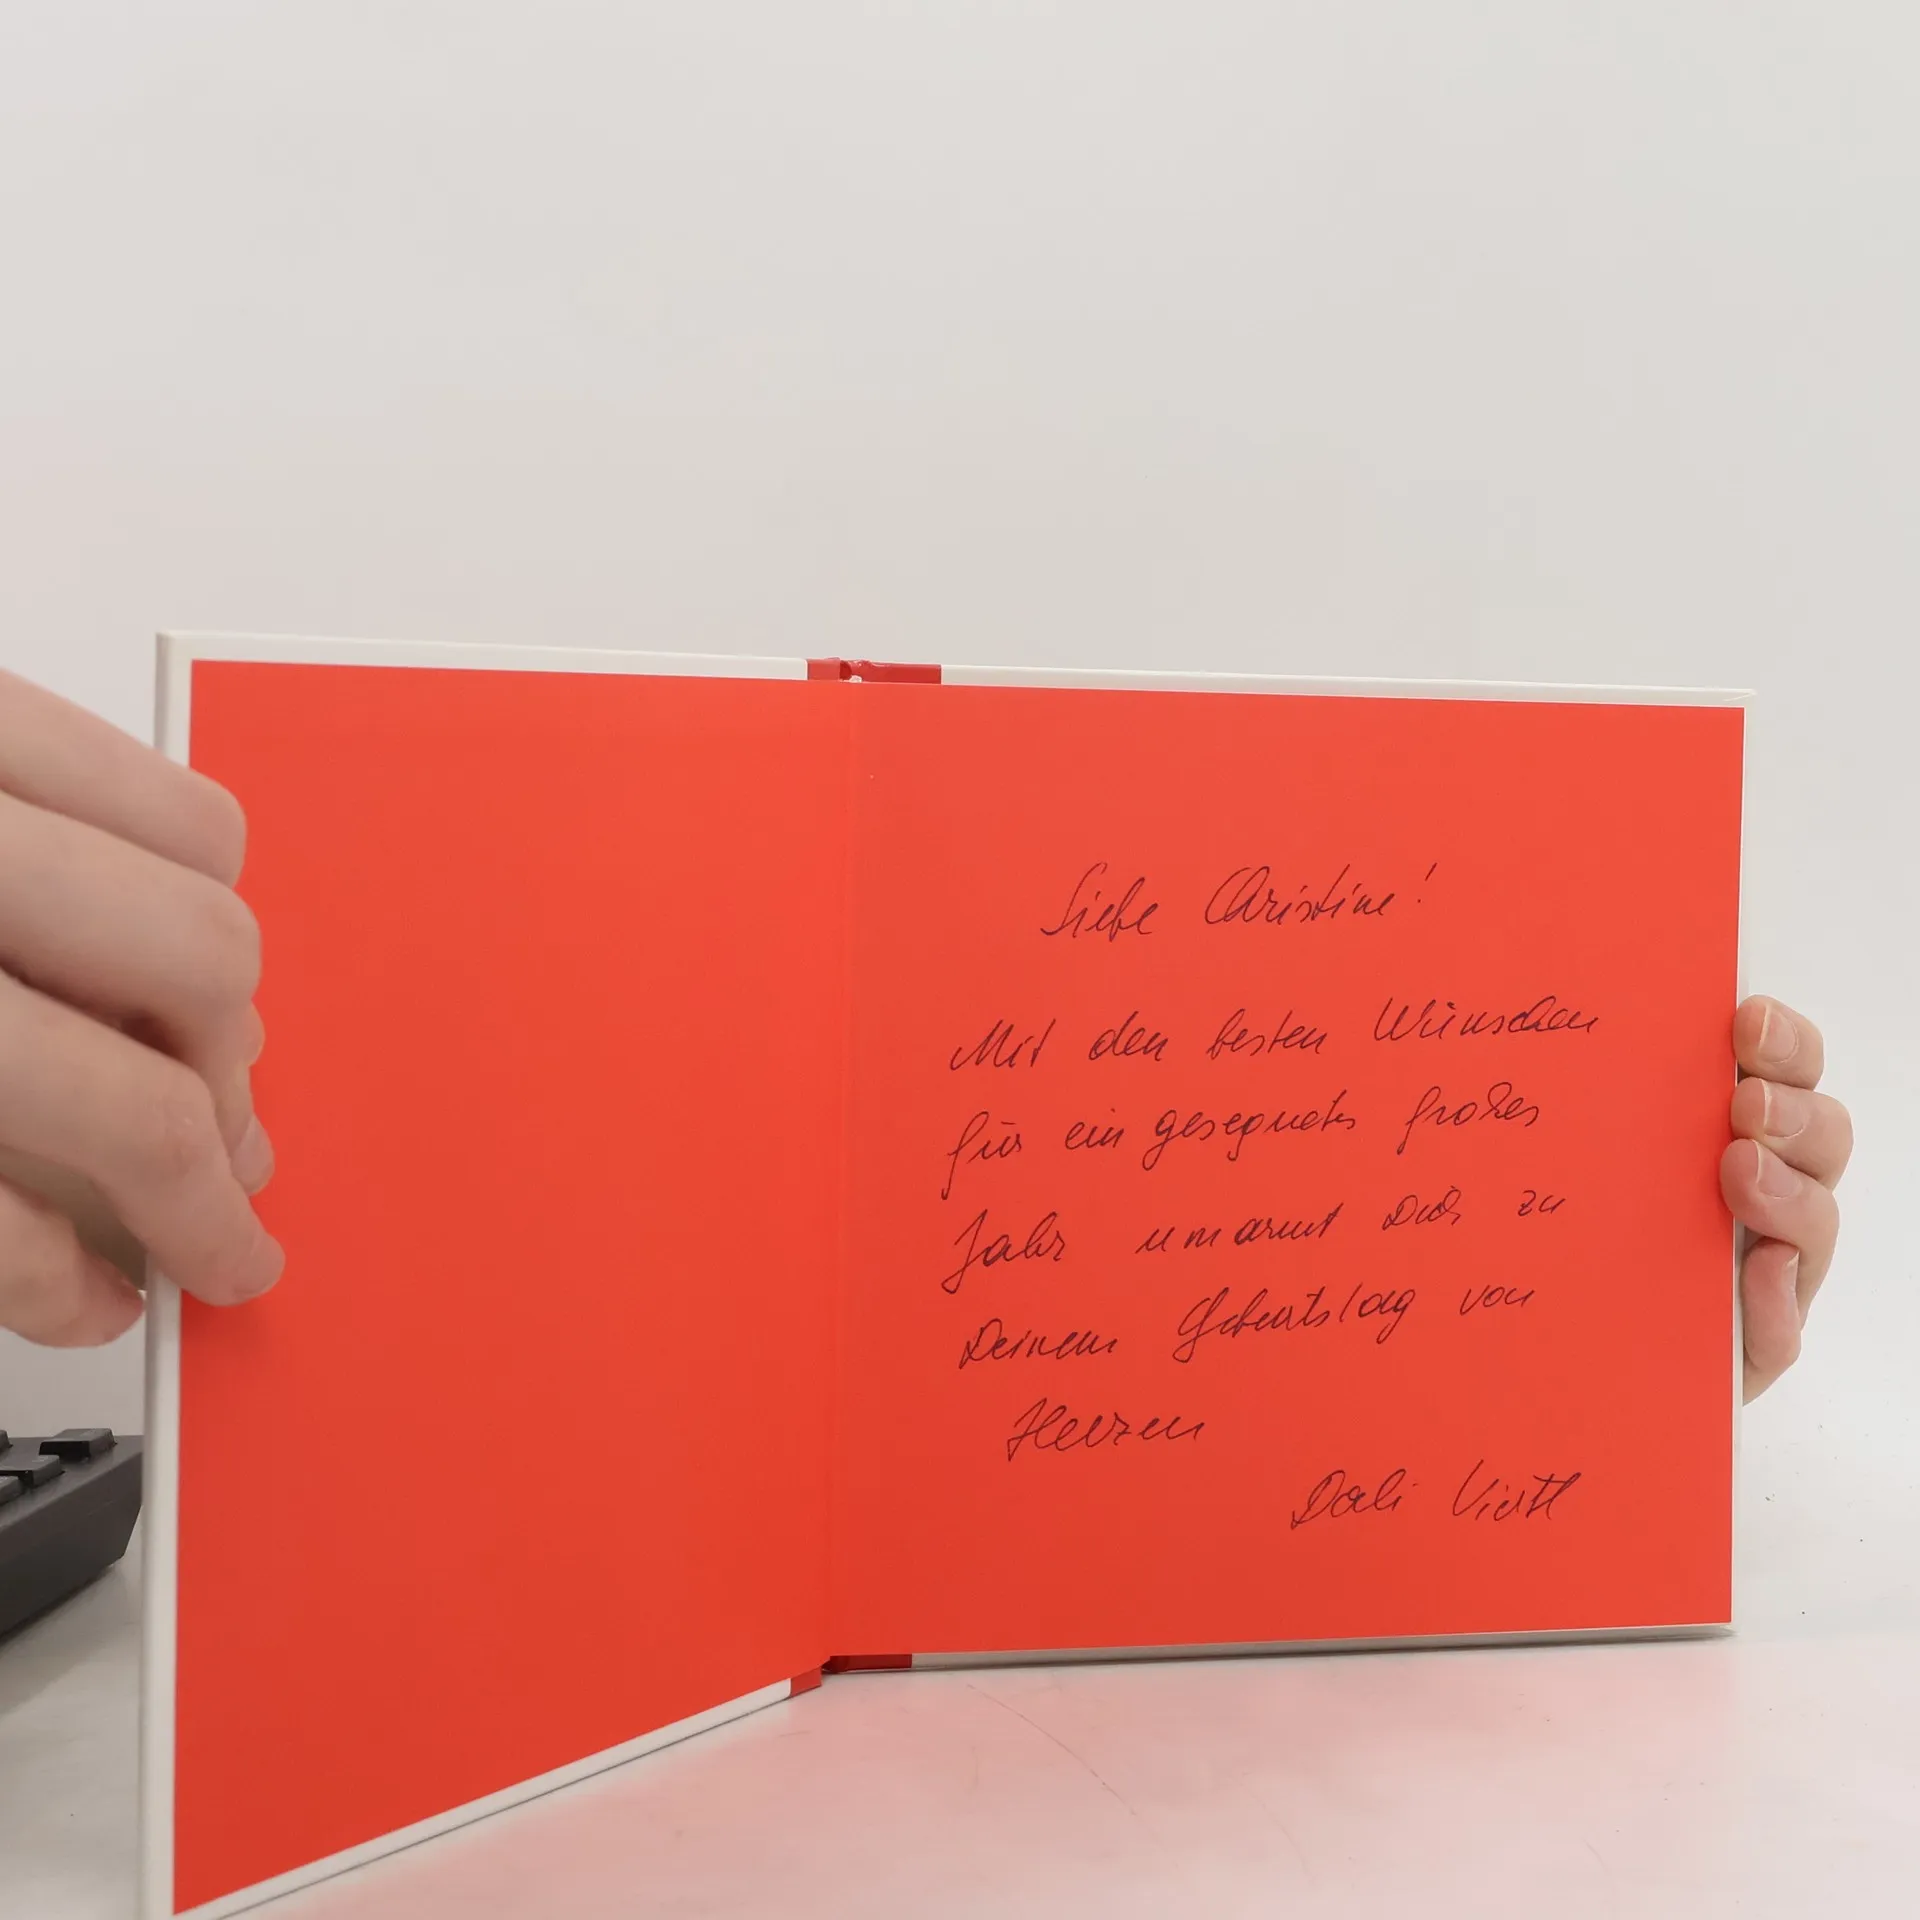 Liebe Christine!
Mit den besten Wünschen
für ein gesegnetes großes
Jahr umarmt Dich zu
Deinem Geburtstag von
Herzen
Dali Viertl